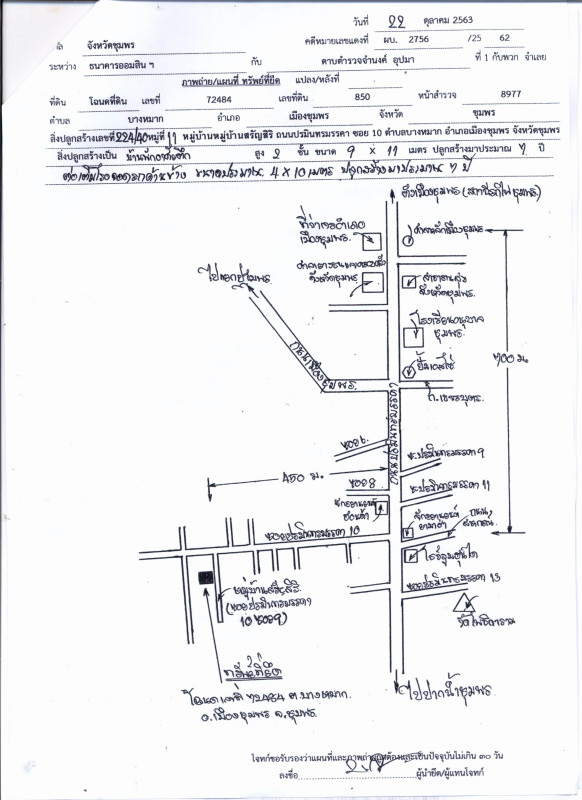 วันที่ 22 ตุลาคม 2563
จังหวัดชุมพร คดีหมายเลขแดงที่ ผบ. 2756 /25 62
ระหว่าง ธนาคารออมสิน ฯ กับ ดาบตำรวจจำนงค์ อุปมา ที่ 1 กับพวก จำเลย
ภาพถ่าย/แผนที่ ทรัพย์ที่ยึด แปลง/หลังที่
ที่ดิน โฉนดที่ดิน เลขที่ 72484 เลขที่ดิน 850 หน้าสำรวจ 8977
ตำบล บางหมาก อำเภอ เมืองชุมพร จังหวัด ชุมพร
สิ่งปลูกสร้างเลขที่ 224/40 หมู่ที่ 11 หมู่บ้านหมู่บ้านสรัญสิริ ถนนปรมินทรมรรคา ซอย 10 ตำบลบางหมาก อำเภอเมืองชุมพร จังหวัดชุมพร
สิ่งปลูกสร้างเป็น บ้านพักอาศัยตึก สูง 2 ชั้น ขนาด 9 x 11 เมตร ปลูกสร้างมาประมาณ 7 ปี
ต่อเติมโรงจอดรถด้านข้าง ขนาดประมาณ 4 x 10 เมตร ปลูกสร้างมาประมาณ 7 ปี
ที่ว่าการอำเภอ
เมืองชุมพร
จังหวัดชุมพร
ไปแยกปฐมพร
โรงเรียนอนุบาล
ชุมพร
700 ม.
ซอย 6
ซ.ปรมินทรมรรคา 9
450 ม.
ซอย 8
ซ.ปรมินทรมรรคา 11
ถนนปรมินทรมรรคา
ซอยปรมินทรมรรคา 10
ซอยปรมินทรมรรคา 13
หมู่บ้านสรัญสิริ
(ซอยปรมินทรมรรคา
10 ซอย 9)
วัดโพธิการาม
ทรัพย์ที่ยึด
โฉนดเลขที่ 72484 ต.บางหมาก
อ.เมืองชุมพร จ.ชุมพร
ไปปากน้ำชุมพร
โจทก์ขอรับรองว่าแผนที่และภาพถ่ายถูกต้องและเป็นปัจจุบันไม่เกิน ๓๐ วัน
ลงชื่อ ผู้นำยึด/ผู้แทนโจทก์